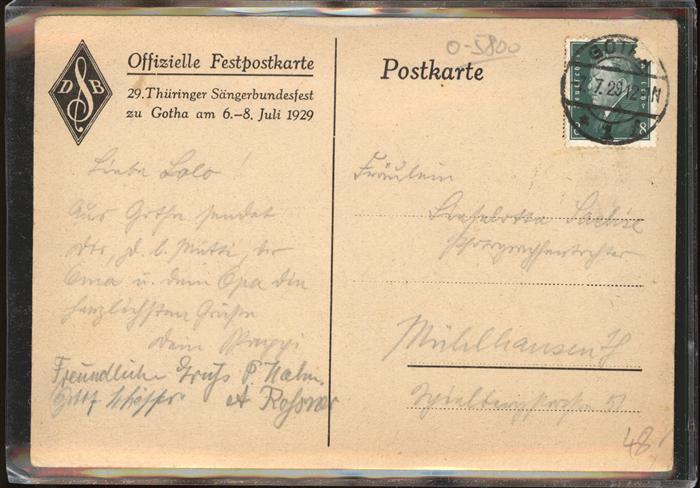 D S B
Offizielle Festpostkarte
29. Thüringer Sängerbundesfest
zu Gotha am 6.–8. Juli 1929
Postkarte
0-5800
GOTHA
7.29.12
8
Liebe Lolo!
Aus Gotha sendet
Dir, d. l. Mutti, der
Oma u. dem Opa die
herzlichsten Grüße
Dein Pappi
Freundliche Gruß
Fräulein
Mühlhausen i/Th
48